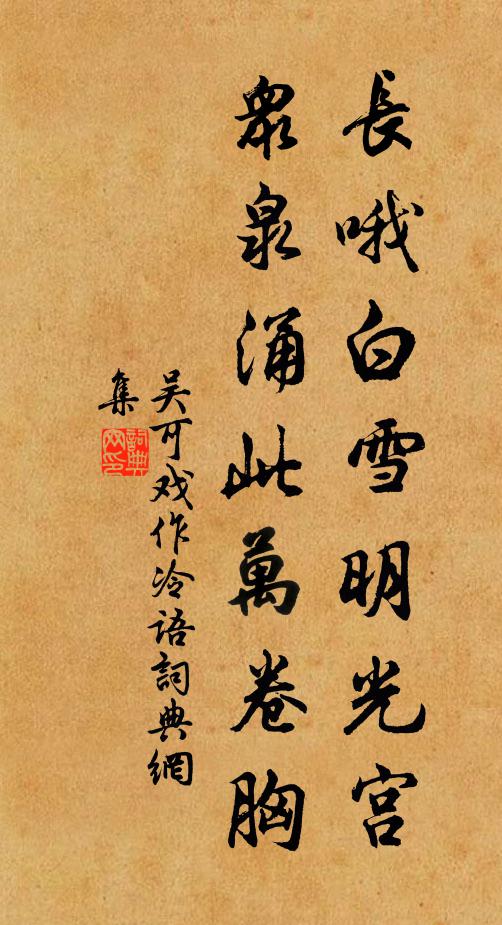 長哦白雪明光宫
眾泉涌此萬卷胸
吴可戏作冷语詞典網
集
詞典网印